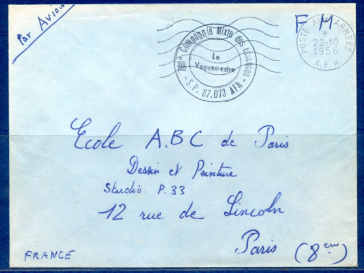 Par Avion
F M
Compagnie Mixte des
Le
Vaguemestre
S.P. 87.073 AFN
POSTE AUX ARMÉES
22-10
1956
A.F.N
Ecole A.B.C de Paris
Dessin et Peinture
Studio P.33
12 rue de Lincoln
Paris (8em)
FRANCE